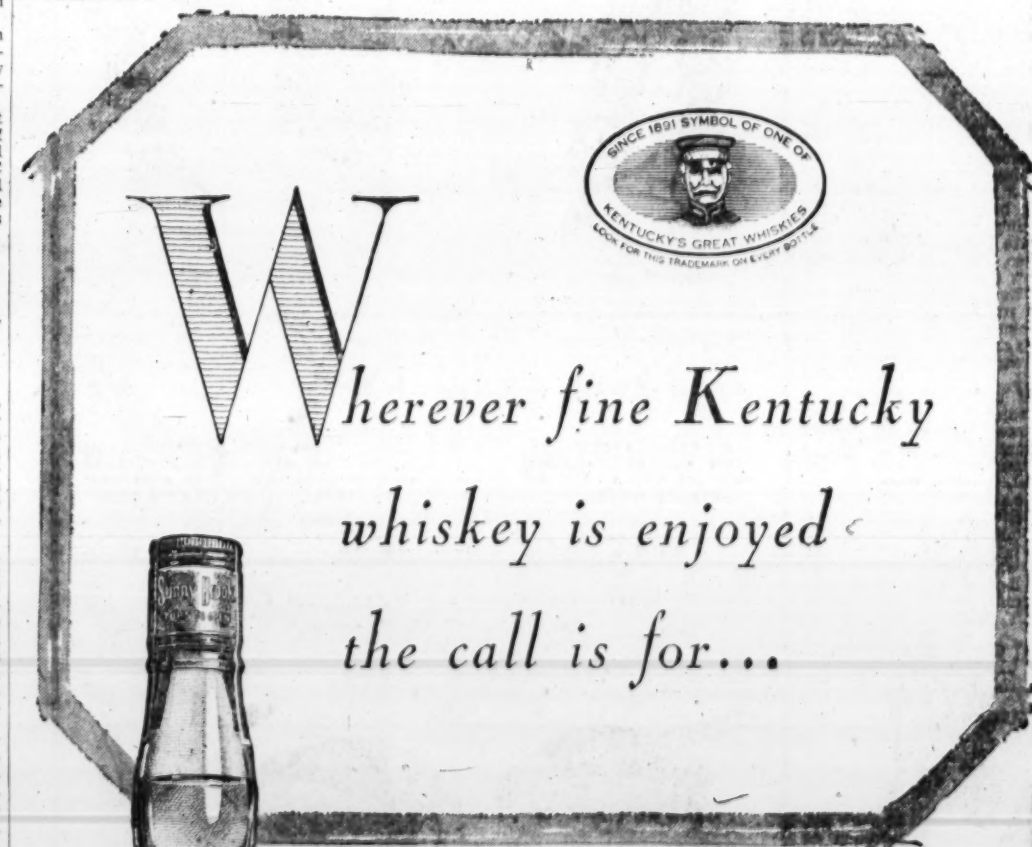 SINCE 1891 SYMBOL OF ONE OF
KENTUCKY'S GREAT WHISKIES
LOOK FOR THIS TRADEMARK ON EVERY BOTTLE
Wherever fine Kentucky
whiskey is enjoyed
the call is for...
Sunny Brook